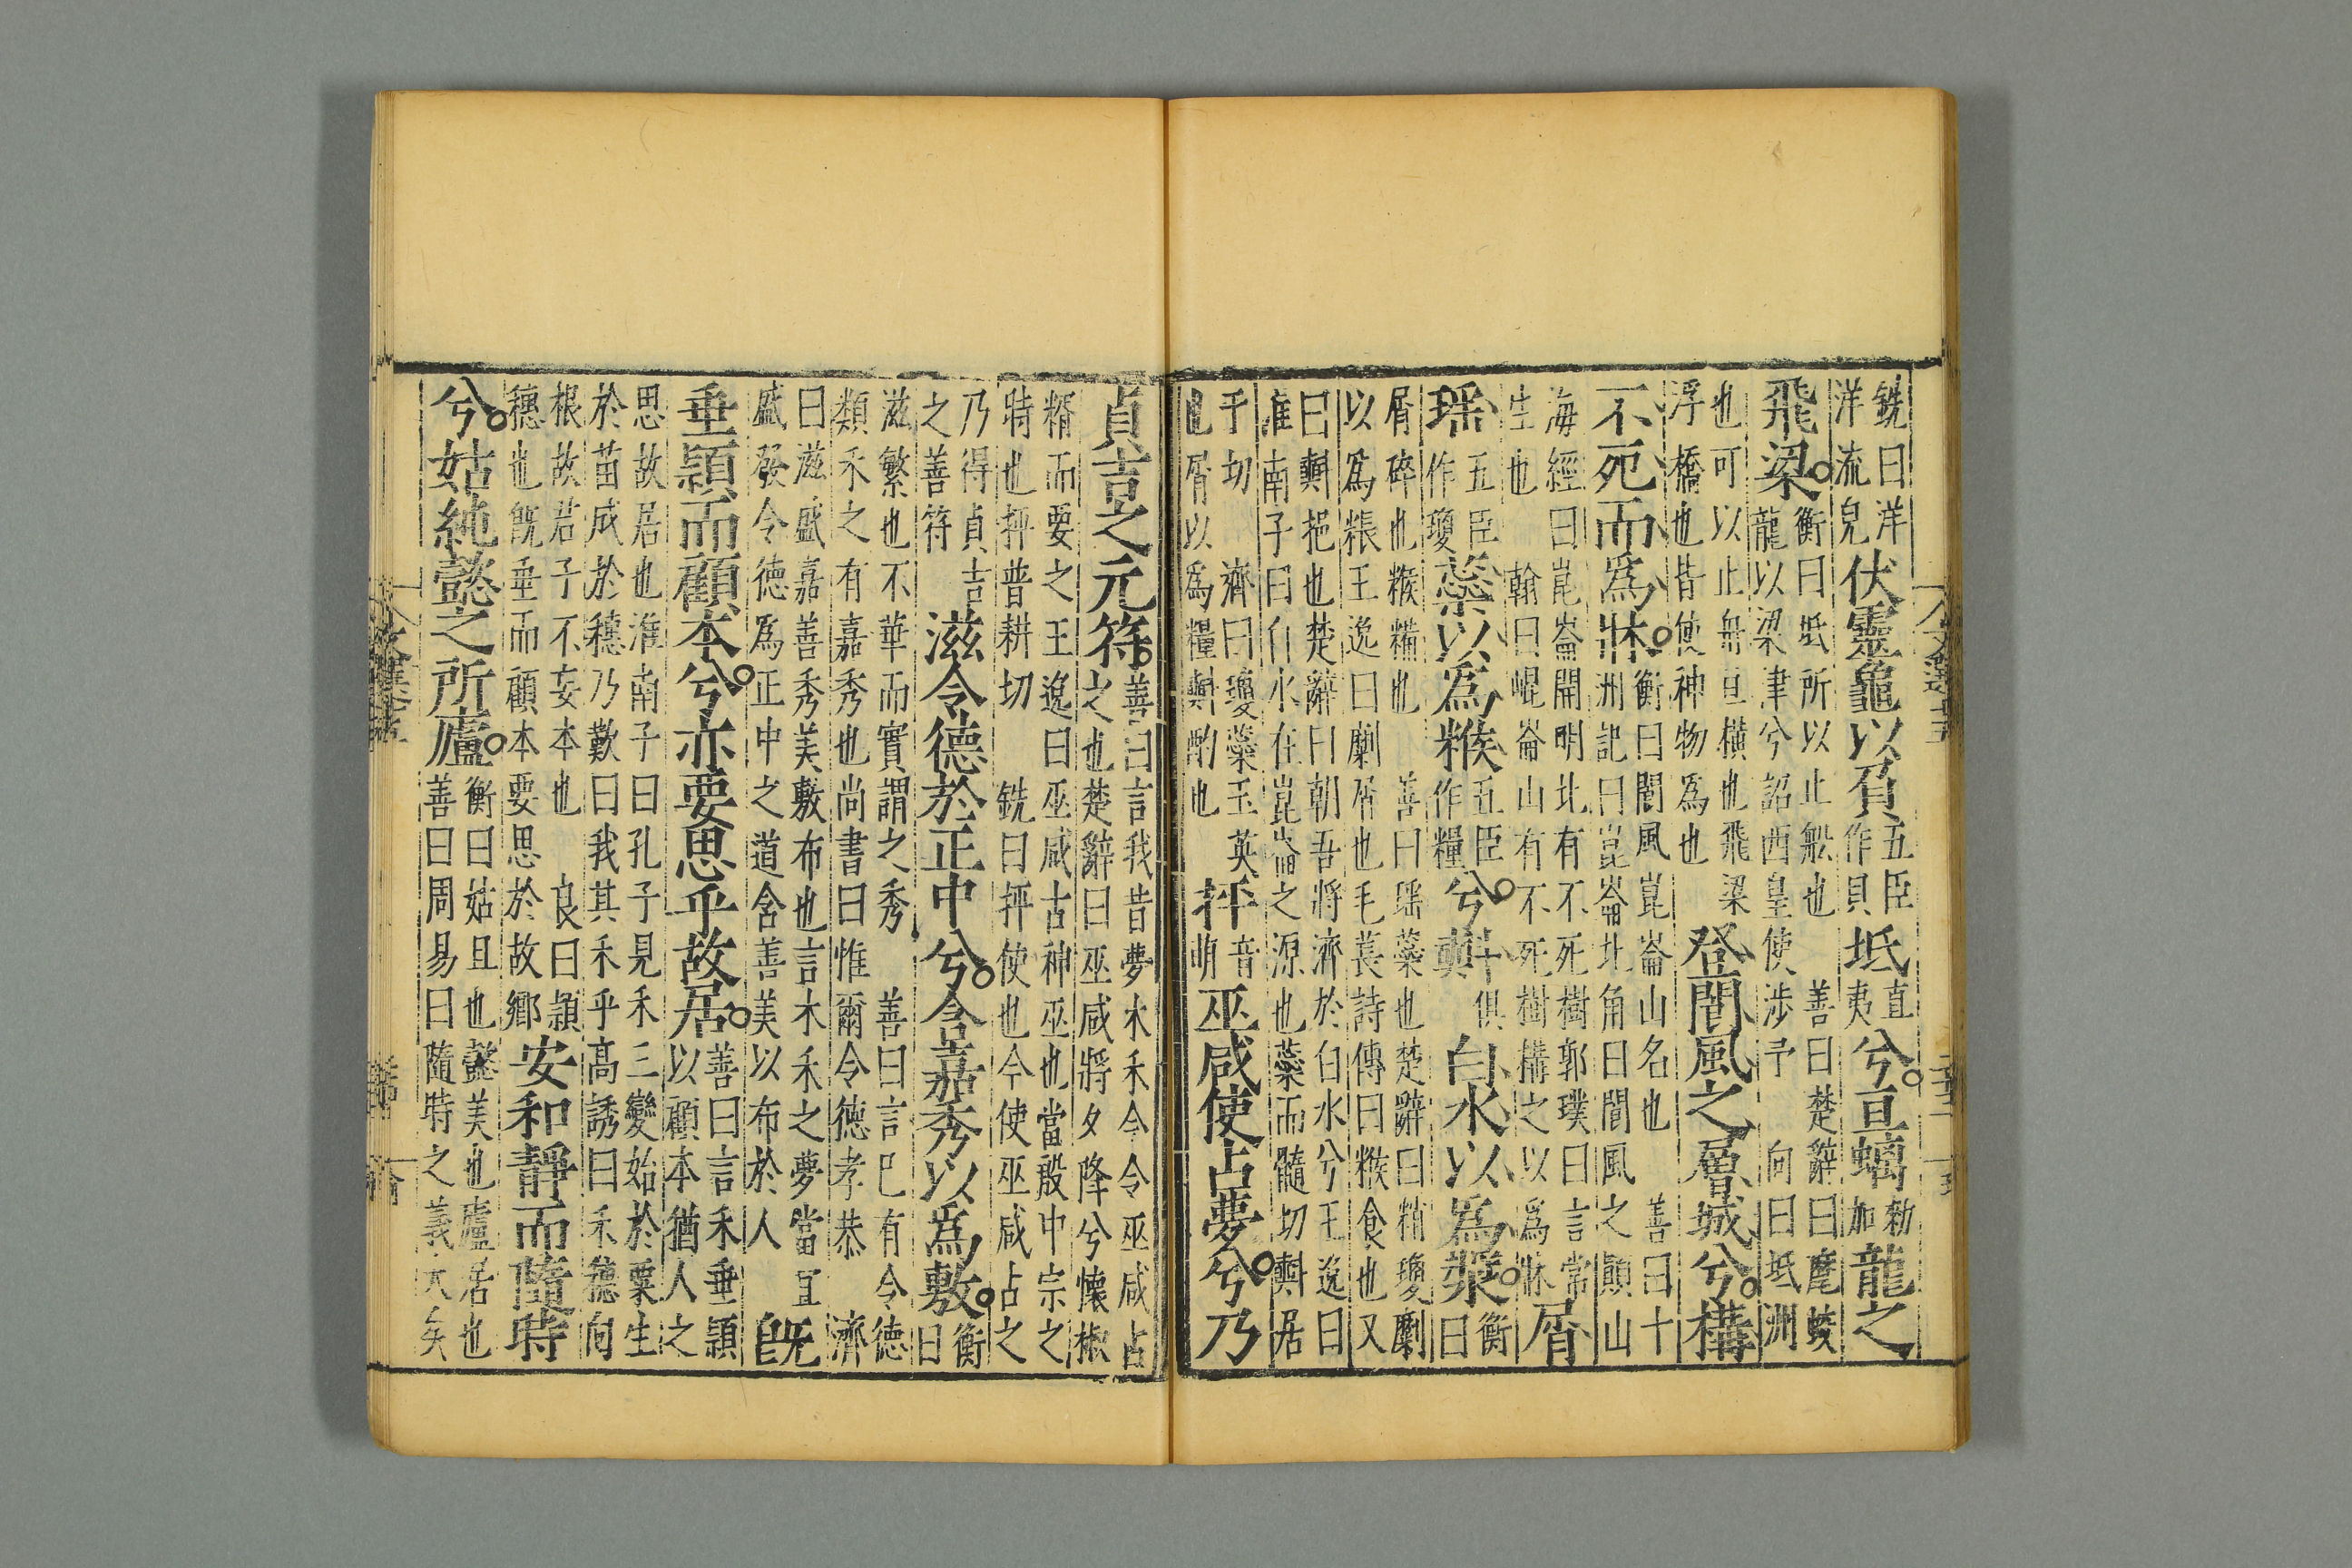 銑曰洋洋流皃伏靈龜以負五臣作貝坻直夷兮亘螭勑加龍之
飛梁衡曰坻所以止船也善曰楚辭曰麾蛟龍以梁津兮詔西皇使涉予向曰坻洲
也可以止舟亘橫也飛梁浮橋也昔使神物為也登閬風之層城兮構
不死而為牀衡曰閬風崑崙山名也善曰十洲記曰崑崙北角曰閬風之顛山
海經曰崑崙開明北有不死樹郭璞曰言常生也翰曰崐崙山有不死樹構之以為牀屑
瑶五臣作瓊蘂以為糇五臣作糧兮㪺俱白水以為漿衡曰
屑碎也糇糒也善曰瑶蘂也楚辭曰精瓊劘以為粻王逸曰劘屑也毛萇詩傳曰糇食也又
曰㪺挹也楚辭曰朝吾將濟於白水兮王逸曰淮南子曰白水在崑崙之源也蘂而髓切㪺居
于切濟曰瓊蘂玉英也屑以為糧㪺酌也抨音萌巫咸使占夢兮乃
貞吉之元符善曰言我昔夢木禾今令巫咸占之也楚辭曰巫咸將夕降兮懷椒
糈而要之王逸曰巫咸古神巫也當殷中宗之特也抨普耕切銑曰抨使也今使巫咸占之
乃得貞吉之善符滋令德於正中兮含嘉秀以為敷衡曰
滋繁也不華而實謂之秀善曰言已有令德類禾之有嘉秀也尚書曰惟爾令德孝恭濟
曰滋盛嘉善秀美敷布也言木禾之夢當宜盛發令德為正中之道含善美以布於人既
垂穎而顧本兮亦要思乎故居善曰言禾垂穎以顧本猶人之
思故居也淮南子曰孔子見禾三變始於粟生於苗成於穗乃歎曰我其禾乎高誘曰禾穗向
根故君子不妄本也良曰穎穗也旣垂而顧本要思於故鄉安和靜而隨時
兮姑純懿之所廬衡曰姑且也懿美也廬居也善曰周易曰隨時之義大矣